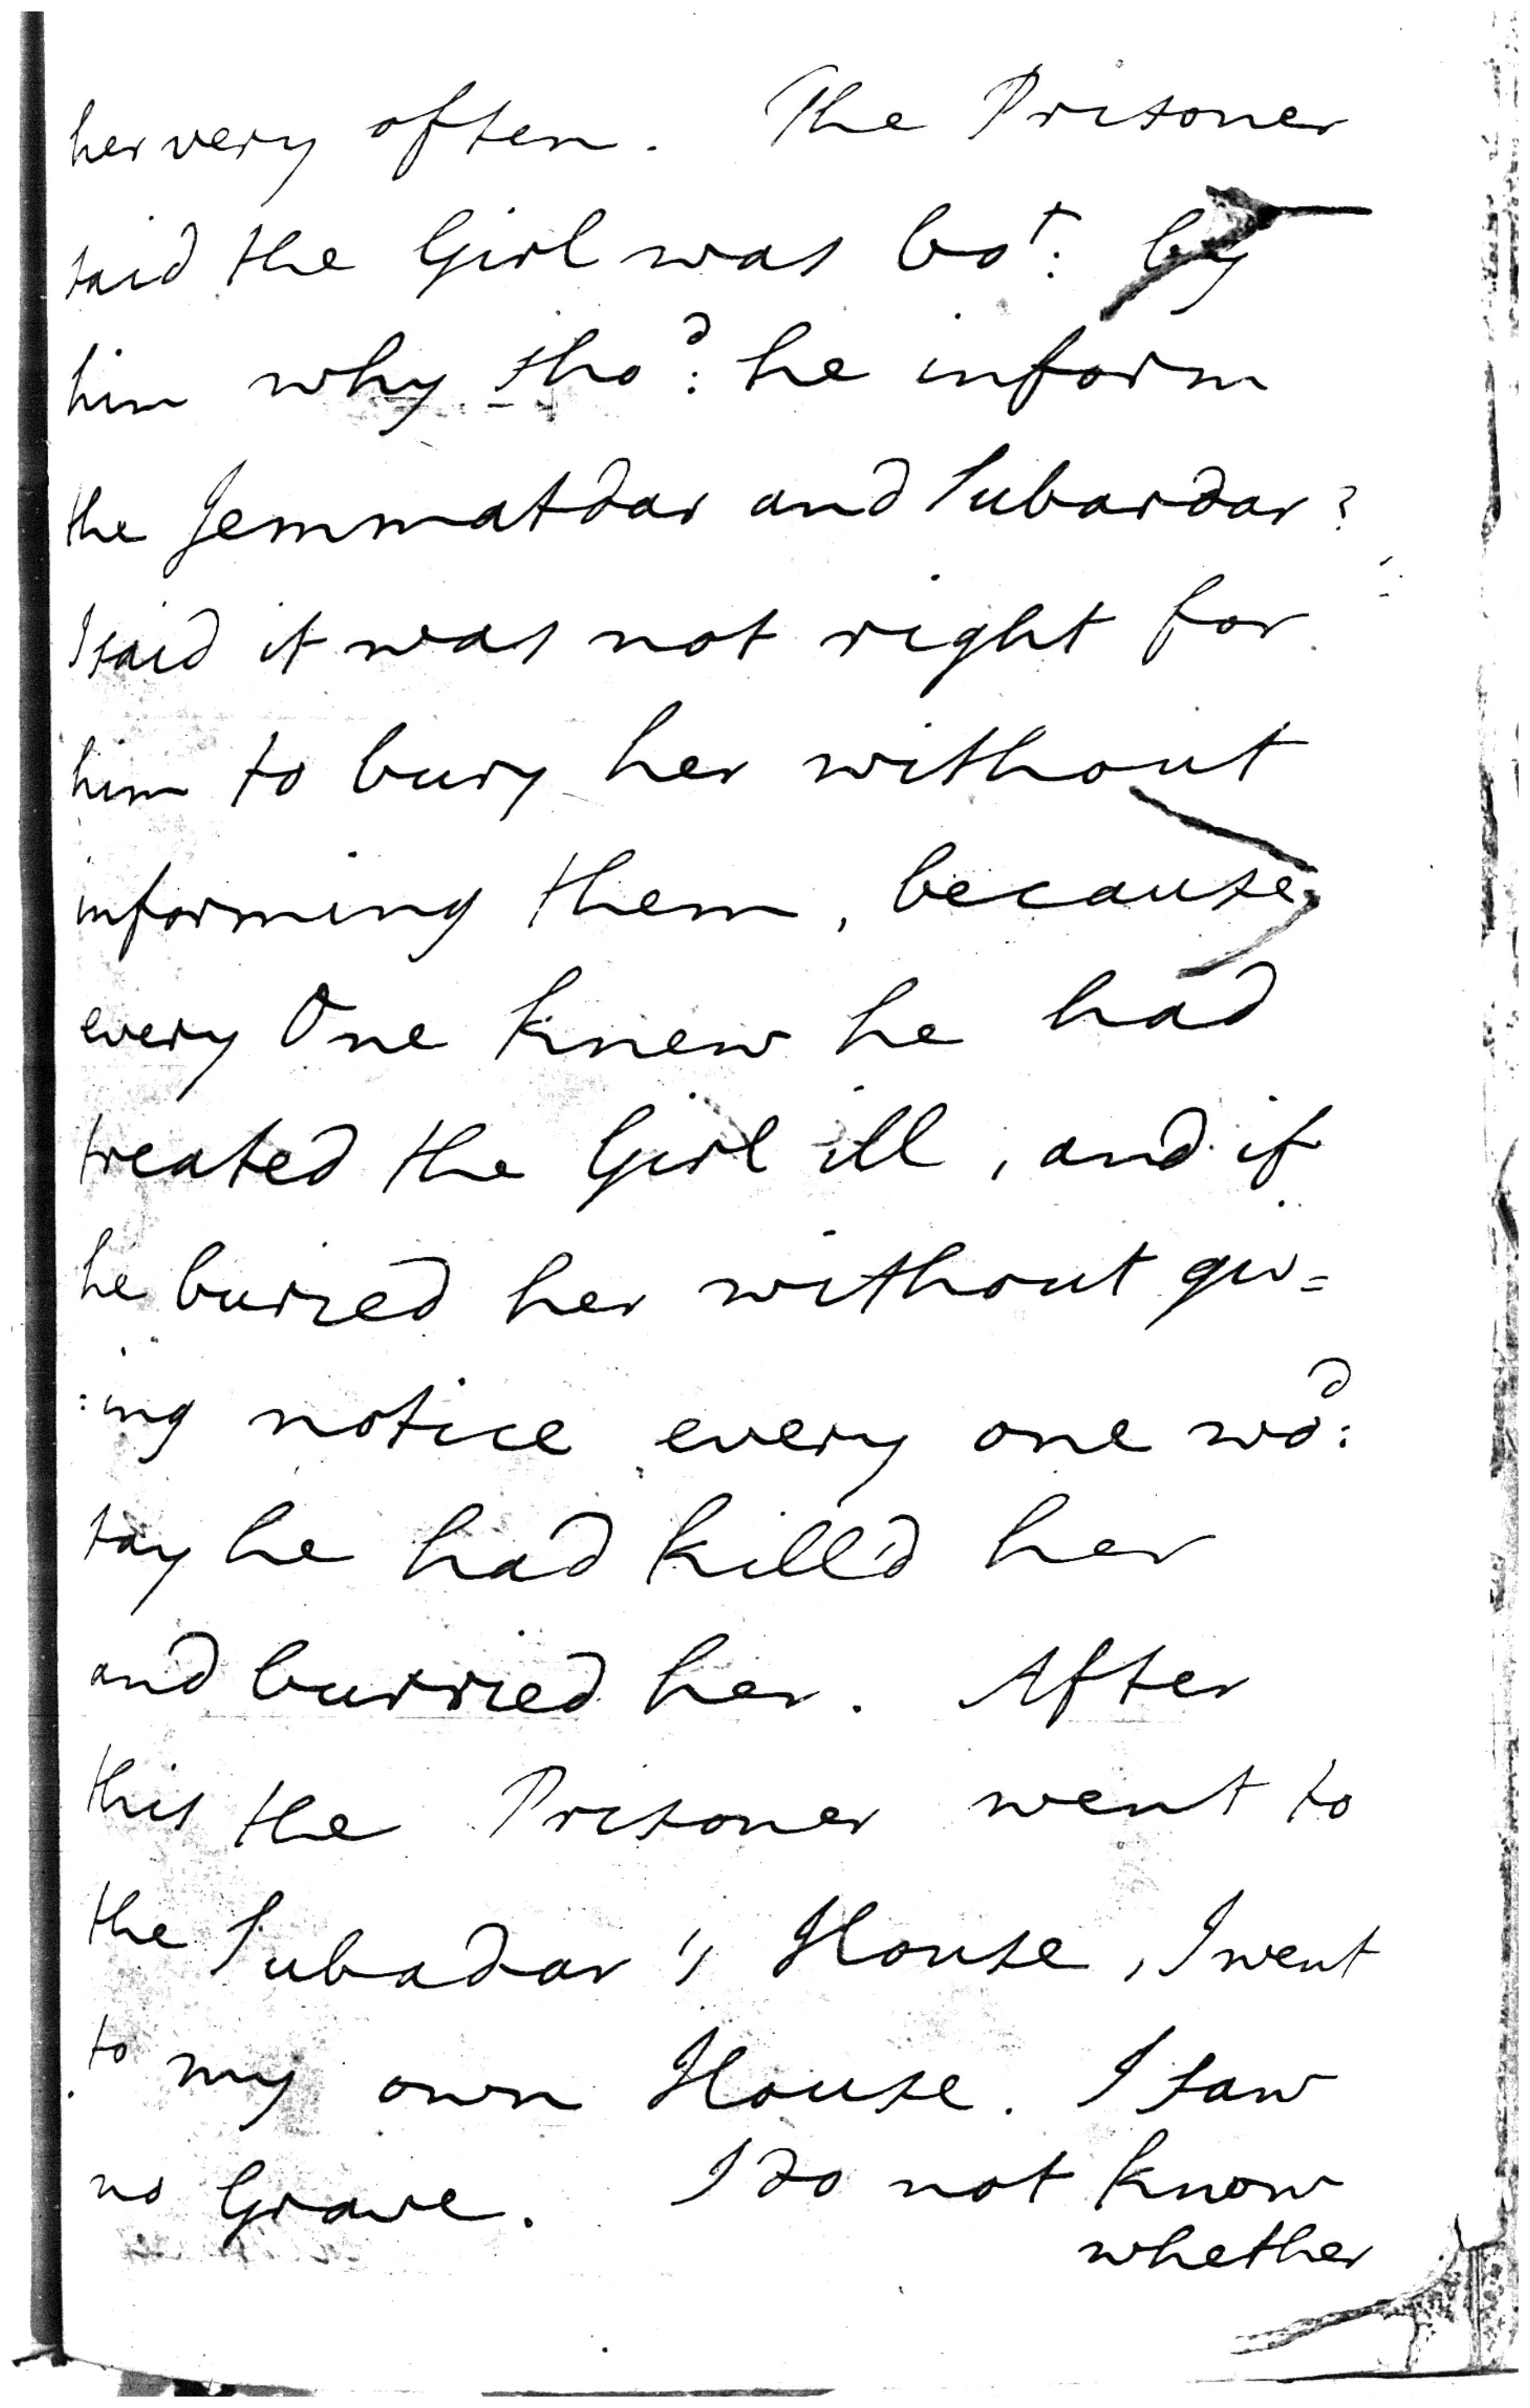 her very often. The Prisoner
said the Girl was bot: by
him why shod: he inform
the Jemmatdar and Subardar?
I said it was not right for
him to bury her without
informing them, because
every One knew he had
treated the Girl ill, and if
he buried her without giv=
:ing notice every one wod:
say he had kill'd her
and burried her. After
this the Prisoner went to
the Subadar's House, I went
to my own House. I saw
no Grave. I do not know
whether